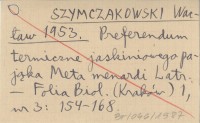 SZYMCZAKOWSKI Wac-
ław 1953. Preferendum
termiczne jaskiniowego pa-
jąka Meta menardi Latr.
— Folia Biol. (Kraków) 1,
nr 3: 154-168.